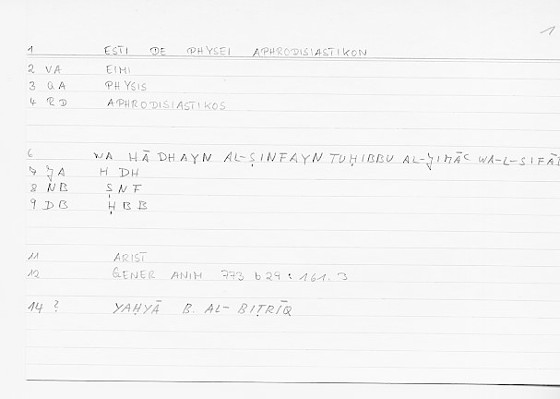 1
1 ESTI DE PHYSEI APHRODISIASTIKON
2 VA EIMI
3 QA PHYSIS
4 RD APHRODISIASTIKOS
6 WA HĀDHAYN AL-ṢINFAYN TUḤIBBU AL-ǦIMĀʿ WA-L-SIFĀD
7 JA H DH
8 NB ṢNF
9 DB ḤBB
11 ARIST
12 GENER ANIM 773 b 29 : 161.3
14 ? YAḤYĀ B. AL-BIṬRĪQ